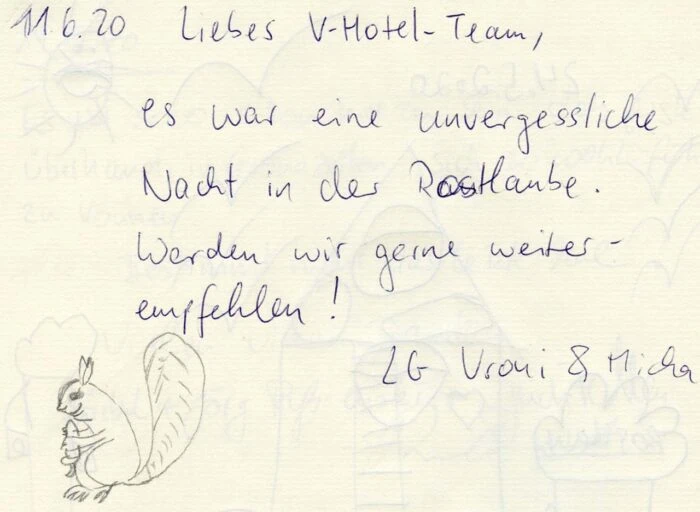 11.6.20 Liebes V-Hotel-Team,
es war eine unvergessliche
Nacht in der Rastlaube.
Werden wir gerne weiter-
empfehlen!
LG Vroni & Micha